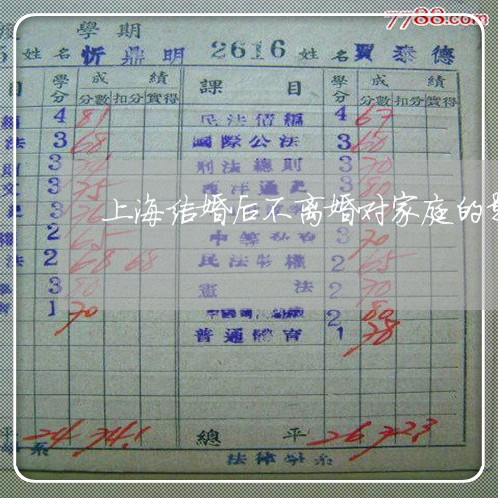 7788.com
學期
姓名 忻鼎明 2616 姓名 賈泰德
目 學分 成績 課目 學分 成績
分數 扣分 實得 分數 扣分 實得
4 81 民法債編 4 67
法 3 68 國際公法 3 60
則 3 刑法總則 3 70
3 75 西洋通史 3 80
上海结婚后不离婚对家庭的
2 65 3 70
法 2 68 68 民法物權 2 65
3 80 憲法 2 70
1 70 2 80
普通體育 1 78
平 24 74.1 總平 26 72.3
系 法律學系